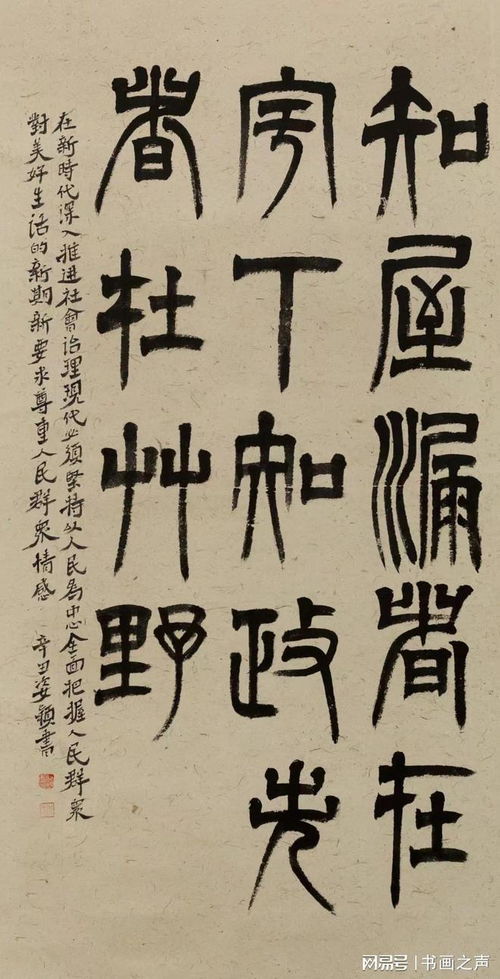 知屋漏者在
宇下知政失
者在艸野
在新時代深入推進社會治理現代必須緊持以人民為中心全面把握人民群衆
對美好生活的新期新要求尊重人民群衆情感 辛丑姿穎書
网易号 | 书画之声